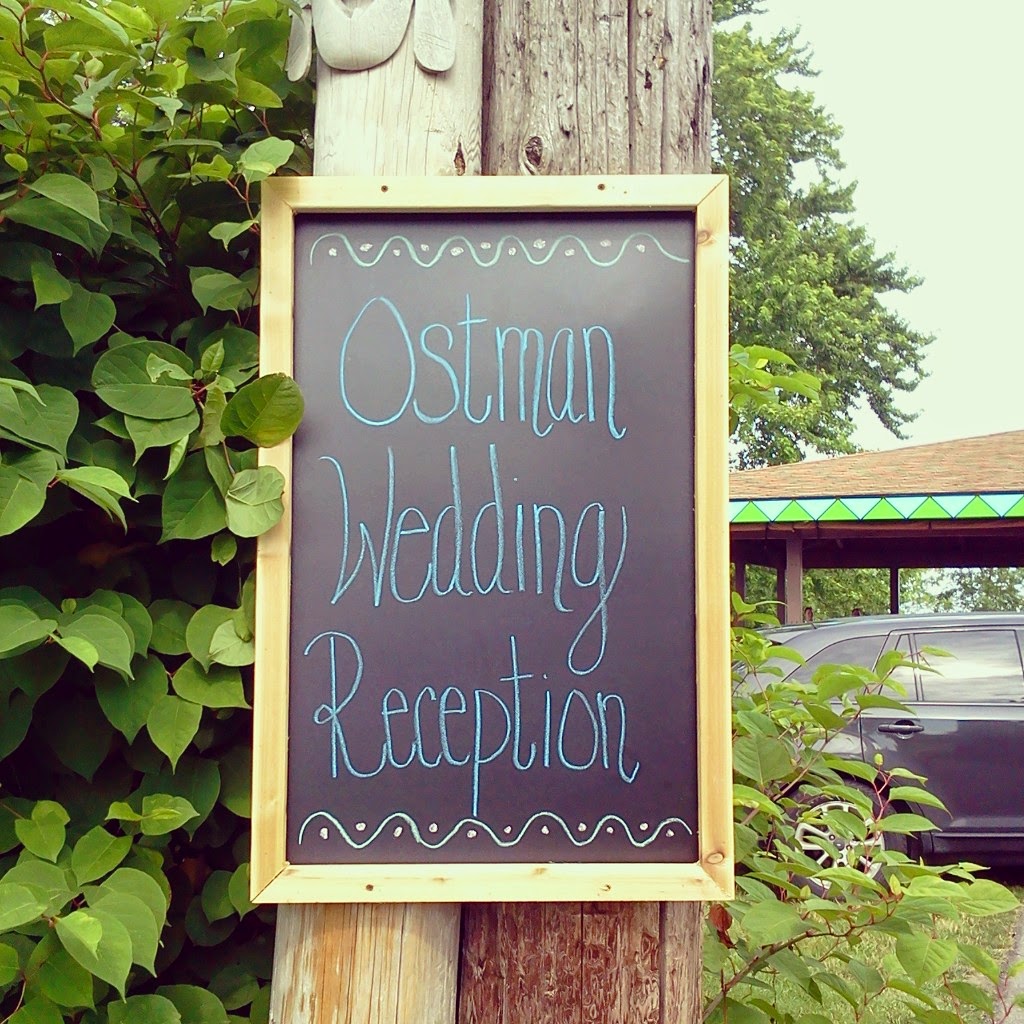 Ostman
Wedding
Reception